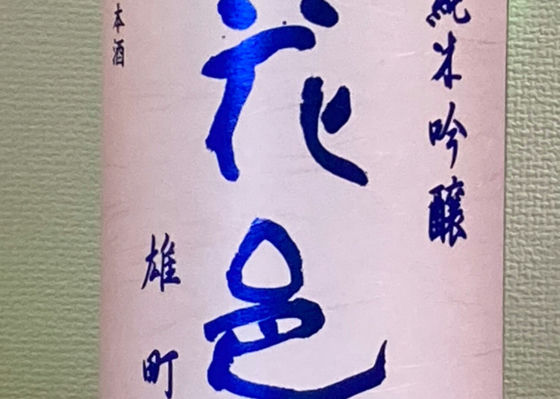 純米吟醸
花邑
雄町
本酒